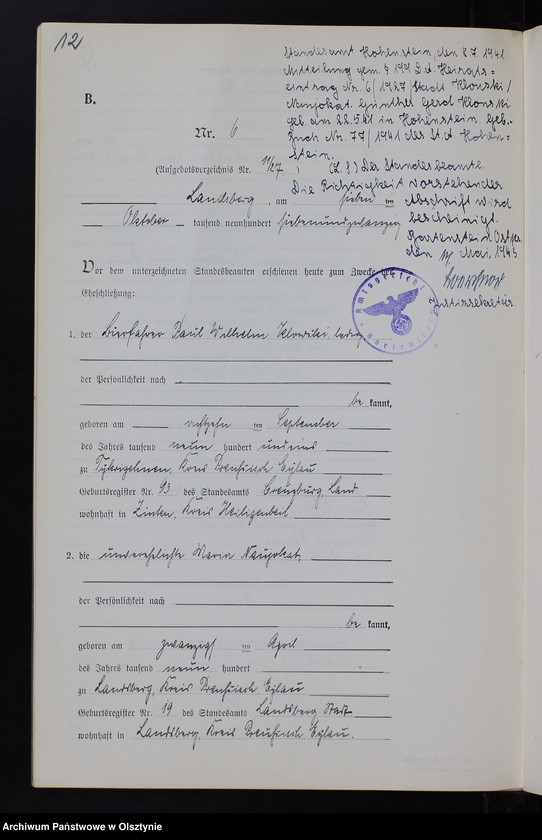 12
Standesamt Hohenstein, den 8.7.1941.
Mitteilung gem. § 199 D.A. Heirats=
eintrag Nr. 6/1927/Stadt Klowski/
Naujokat. Günther Gerd Klowski
geb. am 22.5.41 in Hohenstein. Geb.
Buch Nr. 77/1941 des St.A. Hohen=
stein.
(L.S) Der Standesbeamte.
Die Richtigkeit vorstehender
Abschrift wird
bescheinigt.
Bartenstein Ostpr.
den Mai, 1943.
Justizsekretär
B.
Nr. 6
(Aufgebotsverzeichnis Nr. 11/27)
Landsberg, am sieben ten
Oktober tausend neunhundert siebenundzwanzig
Vor dem unterzeichneten Standesbeamten erschienen heute zum Zwecke der
Eheschließung:
Amtsgericht Bartenstein 2
1. der Bierfahrer Paul Wilhelm ledig
der Persönlichkeit nach
be kannt,
geboren am achtzehn ten September
des Jahres tausend neun hundert undeins
zu Kreis Preußisch Eylau
Geburtsregister Nr. 93 des Standesamts Creuzburg, Land
wohnhaft in Zinten, Kreis Heiligenbeil
2. die unverehelichte Maria Naujokat,
der Persönlichkeit nach
be kannt,
geboren am zwanzigs ten April
des Jahres tausend neun hundert
zu Landsberg, Kreis Preußisch Eylau
Geburtsregister Nr. 19 des Standesamts Landsberg Stadt
wohnhaft in Landsberg, Kreis Preußisch Eylau.
Archiwum Państwowe w Olsztynie